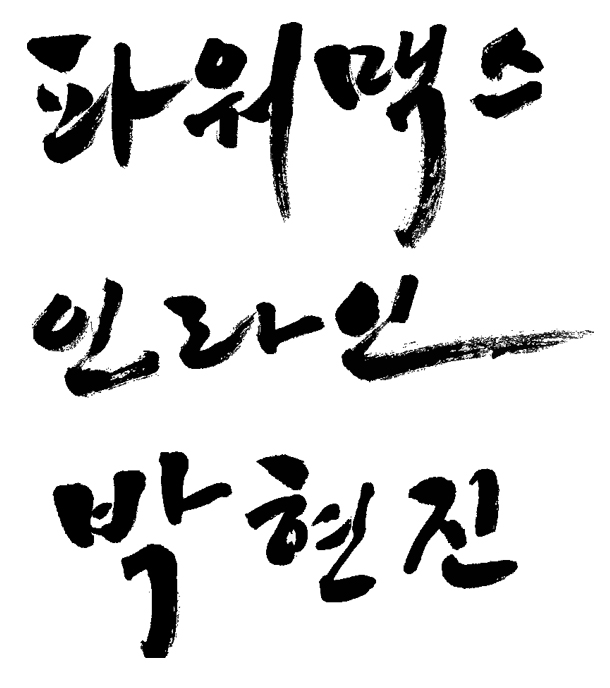 파워맥스
인라인
박현진